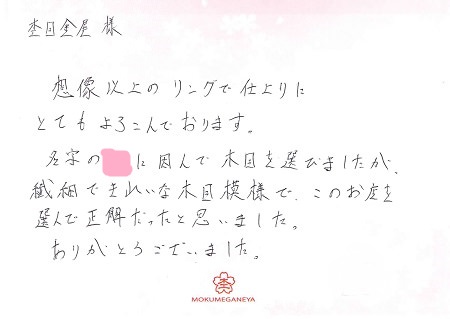 杢目金屋 様
想像以上のリングで仕上りに
とてもよろこんでおります。
名字の に因んで木目を選びましたが、
繊細できれいな木目模様で、このお店を
選んで正解だったと思いました。
ありがとうございました。
MOKUMEGANEYA